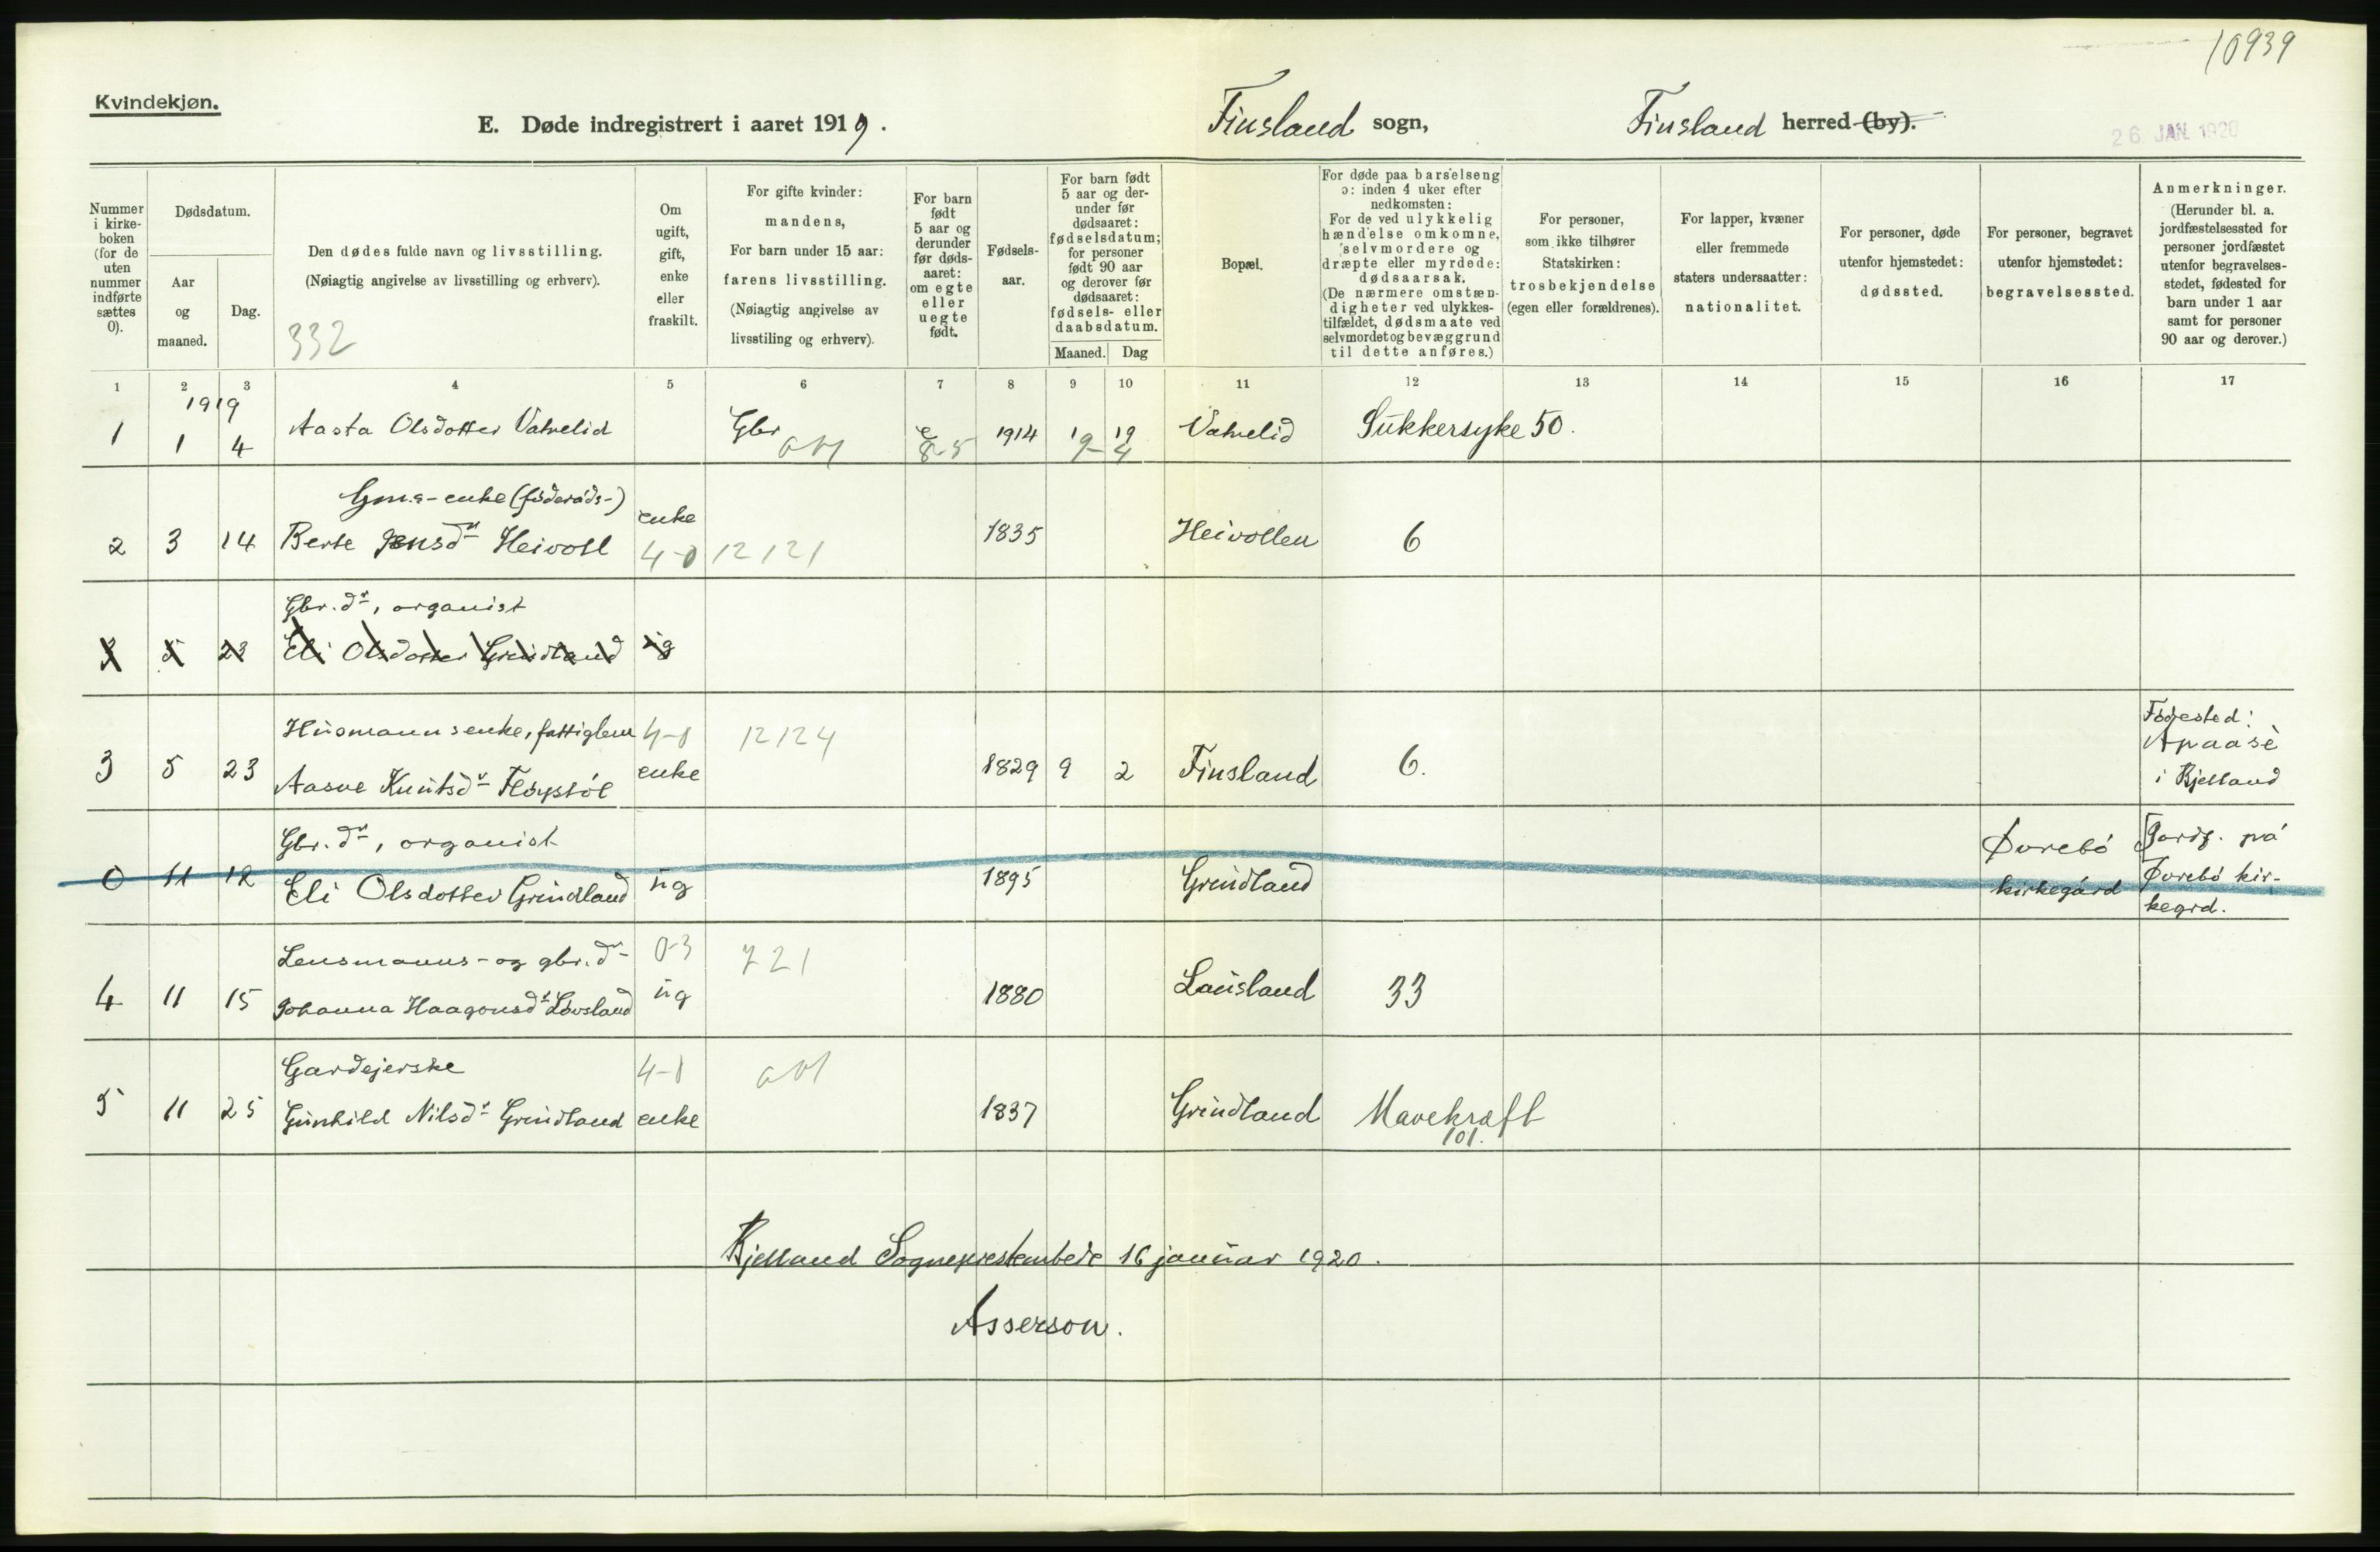 10939
Kvindekjøn.
E. Døde indregistrert i aaret 1919. Finsland sogn, Finsland herred (by).
26 JAN 1920
Nummer i kirke-boken (for de uten nummer indførte sættes 0).
Dødsdatum.
Aar og maaned.
Dag.
Den dødes fulde navn og livsstilling.
(Nøiagtig angivelse av livsstilling og erhverv).
332
Om ugift, gift, enke eller fraskilt.
For gifte kvinder: mandens,
For barn under 15 aar: farens livsstilling.
(Nøiagtig angivelse av livsstiling og erhverv).
For barn født 5 aar og derunder før døds-aaret: om egte eller uegte født.
Fødsels-aar.
For barn født 5 aar og der-under før dødsaaret: fødselsdatum; for personer født 90 aar og derover før dødsaaret: fødsels- eller daabsdatum.
Maaned. Dag
Bopæl.
For døde paa barselseng ɔ: inden 4 uker efter nedkomsten:
For de ved ulykkelig hændelse omkomne, selvmordere og dræpte eller myrdede: dødsaarsak.
(De nærmere omstæn-digheter ved ulykkes-tilfældet, dødsmaate ved selvmordet og bevæggrund til dette anføres.)
For personer, som ikke tilhører Statskirken: trosbekjendelse (egen eller forældrenes).
For lapper, kvæner eller fremmede staters undersaatter: nationalitet.
For personer, døde utenfor hjemstedet: dødssted.
For personer, begravet utenfor hjemstedet: begravelsessted.
Anmerkninger.
(Herunder bl. a. jordfæstelsessted for personer jordfæstet utenfor begravelses-stedet, fødested for barn under 1 aar samt for personer 90 aar og derover.)
1 2 3 4 5 6 7 8 9 10 11 12 13 14 15 16 17
1919
1 1 4 Aasta Olsdotter Vatnelid Gbr e 1914 19 Vatnelid Sukkersyke 50.
8-5 9 4
Gm.s-enke (föderåds-)
2 3 14 Berte Jensdr Heivoll enke 1835 Heivollen 6
4-0 12121
Gbr. dr, organist
3 5 23 Eli Olsdotter Grindland ug
Husmannsenke, fattiglem 4-0 12124
3 5 23 Aasne Knutsdr Flöystöl enke 1829 9 2 Finsland 6.
Födested:
Apaasè
i Bjelland
Gbr. dr, organist
0 11 12 Eli Olsdotter Grindland ug 1895 Grindland Øvrebö kirkegård
[Jordf. på
Øvrebö kir-
kegrd.
Lensmanns- og gbr. dr 0-3 721
4 11 15 Johanna Haagonsdr Lövsland ug 1880 Lauisland 33
Gardejerske 4-0
5 11 25 Gunhild Nilsdr Grindland enke 1837 Grindland Mavekraft
101.
Bjelland Sogneprestembede 16 januar 1920.
Asserson.